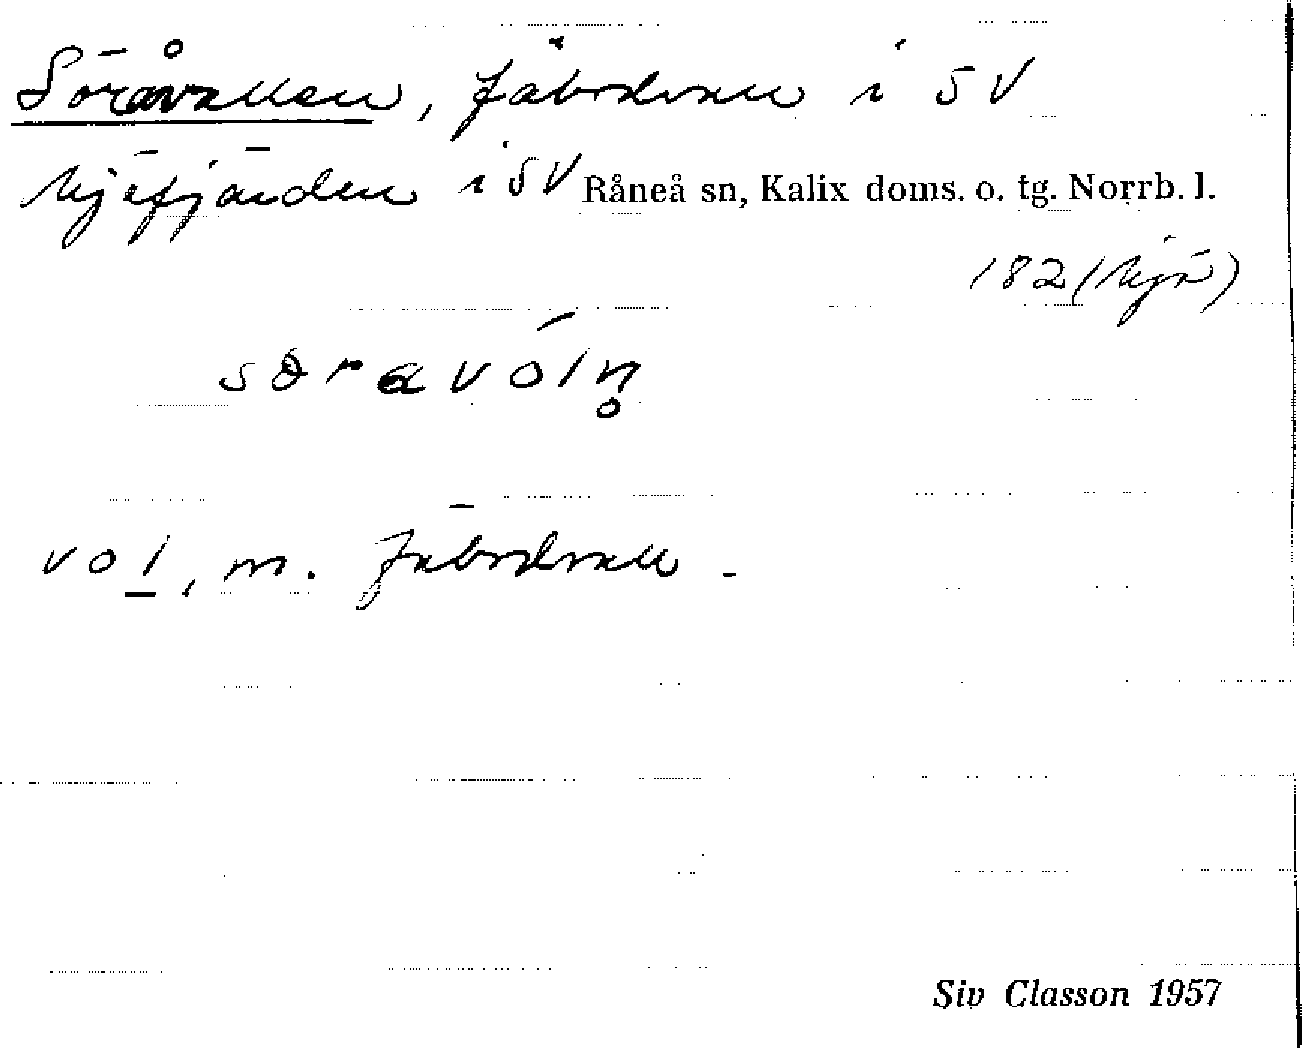 Söråvallen, fäbodvall i SV
Mjöfjärden i SV Råneå sn, Kalix doms. o. tg. Norrb. l.
182 (Mjö)
sørɑvóln̥
vol, m. fäbodvall.
Siv Classon 1957